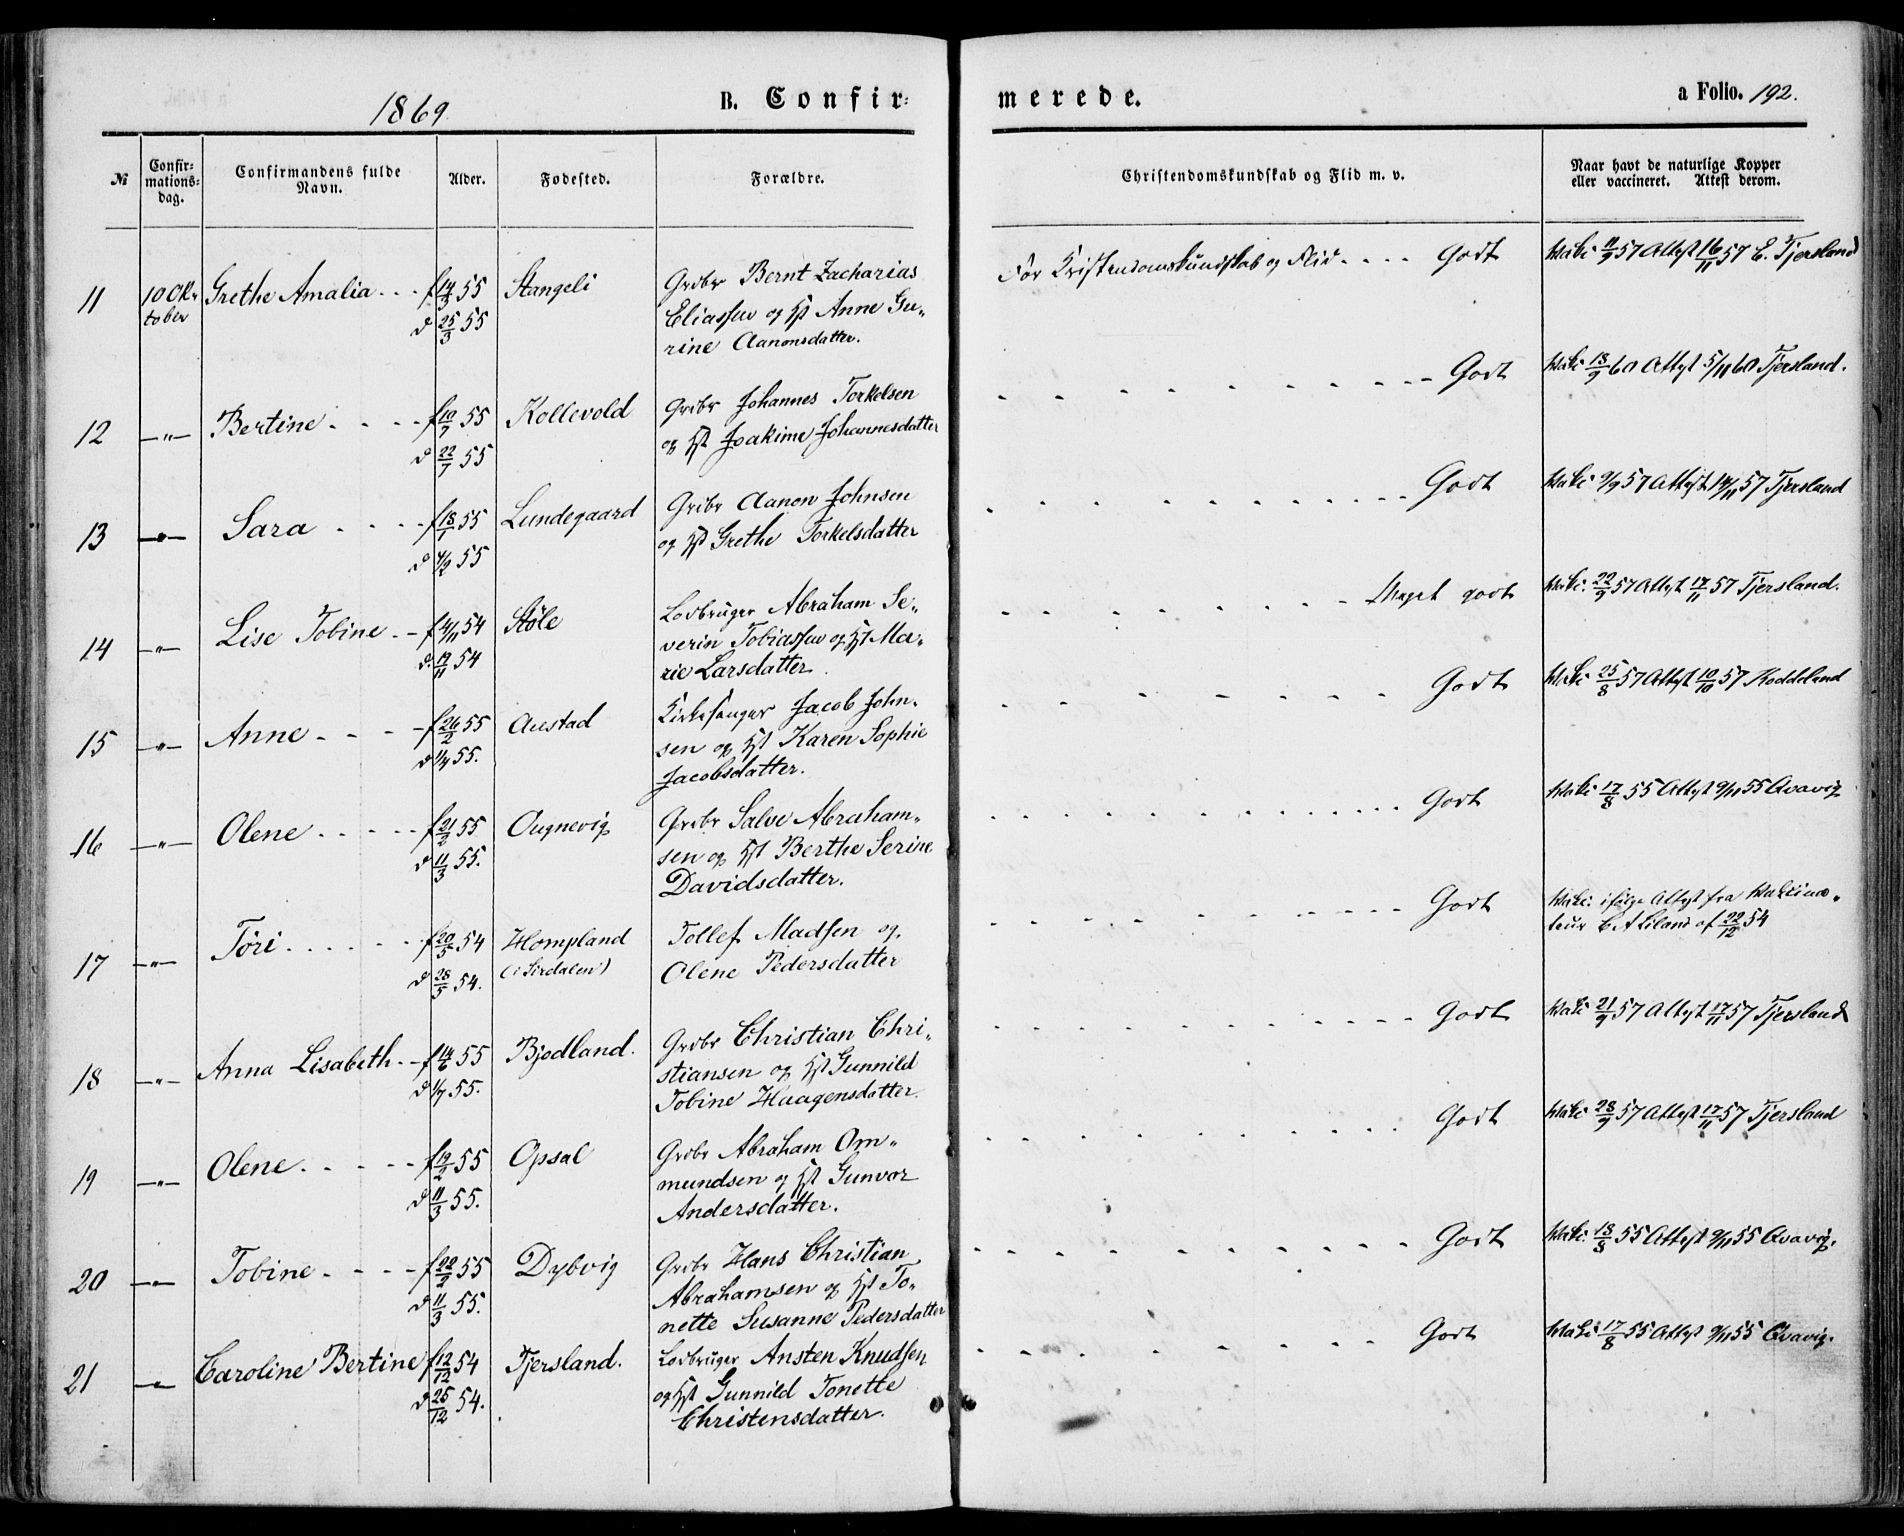 1869.
B. Confir-
merede.
a Folio. 192.
№
Confir-
mations-
dag.
Confirmandens fulde
Navn.
Alder.
Fødested.
Forældre.
Christendomskundskab og Flid m. v.
Naar havt de naturlige Kopper
eller vaccineret. Attest derom.
11
10 Ok-
tober
Grethe Amalia
f 14/3 55
d 25/3 55
Stangeli
Grdbr Bernt Zacharias
Eliassen og Hst Anne Gu-
rine Aanonsdatter.
For Kristendomskundskab og Flid
Godt
Vakc 11/9 57 Attest 16/11 57 E. Tjersland
12
—"—
Bertine
f 10/7 55
d 22/7 55
Kollevold
Grdbr Johannes Torkelsen
og Hst Joakime Johannesdatter
Godt
Vakc 18/9 60 Attest 5/11 60 Tjersland.
13
—"—
Sara
f 18/1 55
d 4/2 55
Lundegaard
Grdbr Aanon Johnsen
og Hst Grethe Torkelsdatter
Godt
Vakc 9/9 57 Attest 14/11 57 Tjersland
14
—"—
Lise Tobine
f 4/11 54
d. 12/11 54
Støle
Lodbruger Abraham Se-
verin Tobiassen og Hst Ma-
rie Larsdatter
Meget godt
Vakc: 22/9 57 Attest 17/11 57 Tjersland.
15
—"—
Anne
f 26/2 55
d 1/4 55.
Austad
Kirkesanger Jacob John-
sen og Hst Karen Sophie
Jacobsdatter.
Godt
Vakc 25/8 57 Attest 10/10 57 Koddeland
16
—"—
Olene
f 21/2 55
d 11/3 55.
Augnevig
Grdbr Salve Abraham-
sen og Hst Berthe Serine
Davidsdatter.
Godt
Vakc 17/8 55 Attest 9/11 55 Qvavig
17
—"—
Tøri
f 20/5 54
d 28/5 54.
Hompland
(i Sirdalen)
Tollef Madsen og
Olene Pedersdatter
Godt
Vakc. ifølge Attest fra Vakcina-
teur E A Liland af 22/12 54
18
—"—
Anna Lisabeth
f 14/6 55
d 1/7 55.
Bjodland.
Grdbr Christian Chri-
stiansen og Hst Gunnild
Tobine Haagensdatter.
Godt
Vakc 21/9 57 Attest 17/11 57 Tjersland
19
—"—
Olene
f 19/2 55
d 11/3 55.
Opsal
Grdbr Abraham Om-
mundsen og Hst Gunvor
Andersdatter.
Godt
Vakc 28/9 57 Attest 17/11 57 Tjersland
20
—"—
Tobine
f 22/2 55
d 11/3 55.
Dybvig
Grdbr Hans Christian
Abrahamsen og Hst To-
nette Susanne Pedersdatter
Godt
Vakc. 18/8 55 Attest 9/11 55 Qvavig.
21
—"—
Caroline Bertine
f 12/12 54
d 25/12 54.
Tjersland.
Lodbruger Ansten Knudsen
og Hst Gunnild Tonette
Christensdatter.
Godt
Vakc 17/8 55 Attest 9/11 55 Qvavig.